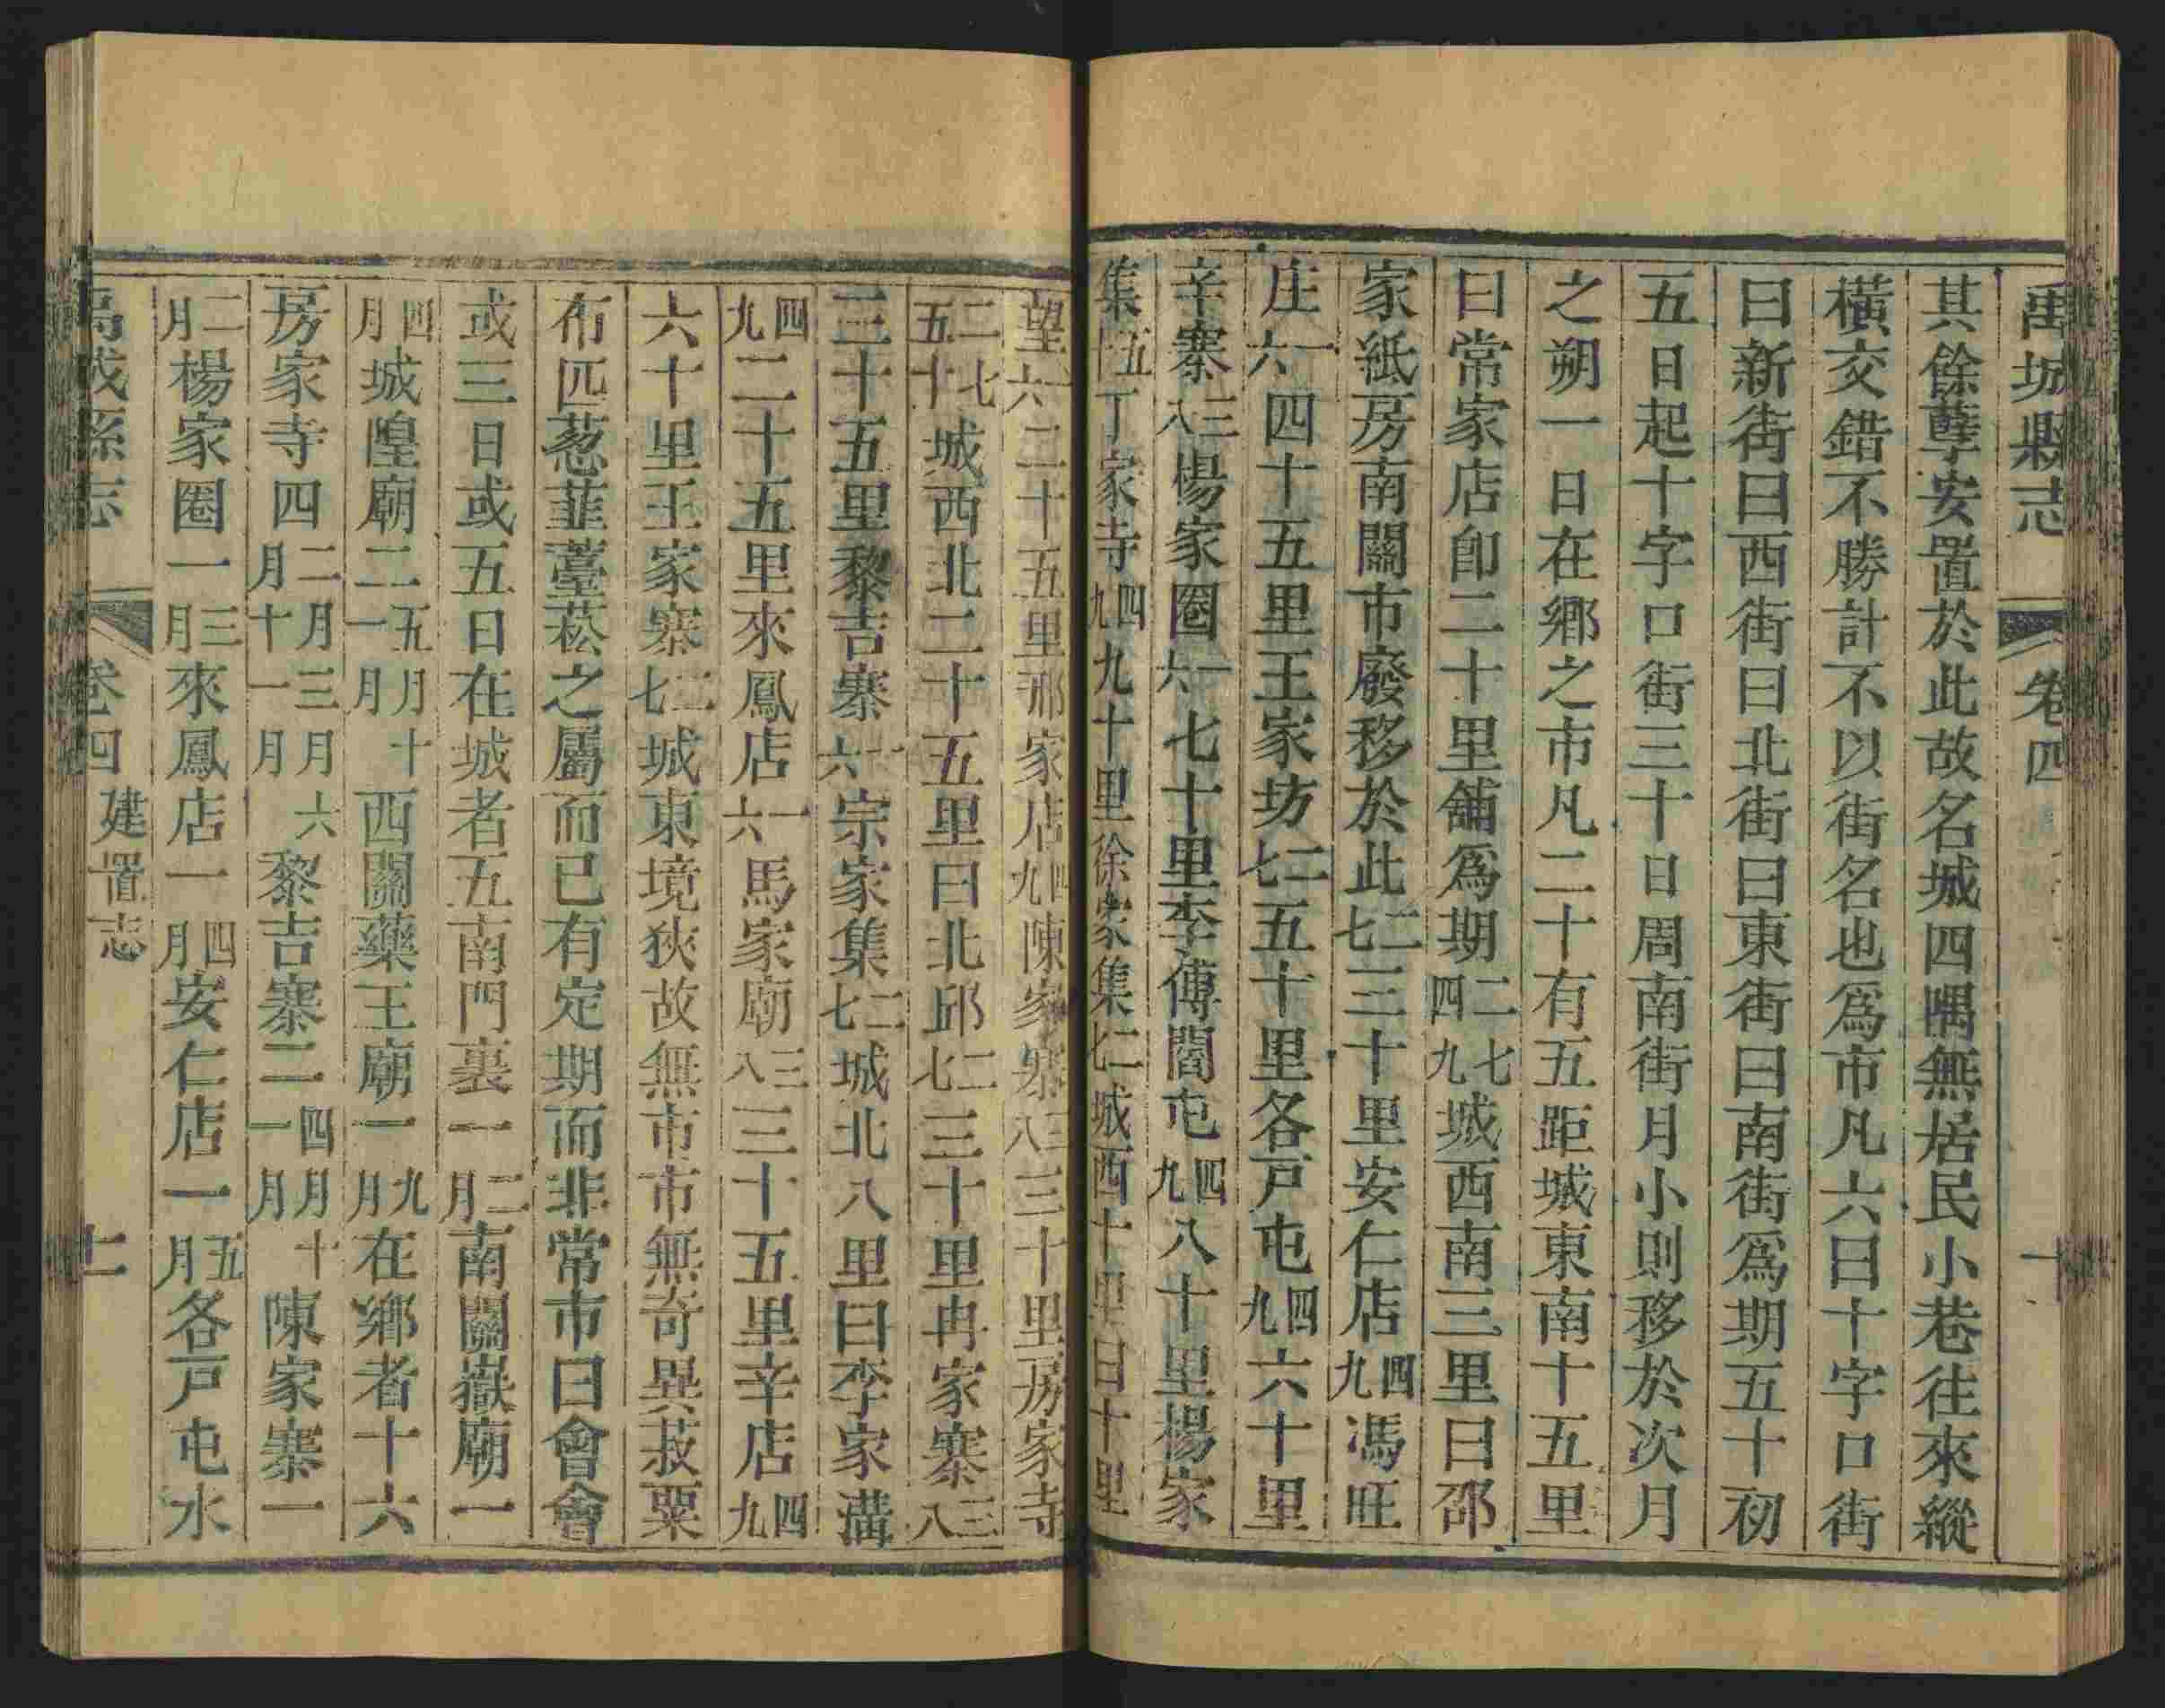 禹城縣志 卷四
其餘孽安置於此故名城四隅無居民小巷往來縱
橫交錯不勝計不以街名也爲市凡六曰十字口街
曰新街曰西街曰北街曰東街曰南街爲期五十初
五日起十字口街三十日周南街月小則移於次月
之朔一日在鄉之市凡二十有五距城東南十五里
曰常家店卽二十里舖爲期二四七九城西南三里曰邵
家紙房南關市廢移於此二七三十里安仁店四九馮旺
庄一六四十五里王家坊二七五十里各戸屯四九六十里
辛寨三八楊家圈一六七十里李傳閣屯四九八十里楊家
集五丁家寺四九九十里徐家集二七城西十里曰十里
望一六二十五里邢家店四九陳家寨三八三十里房家寺
二五七十城西北二十五里曰北邱二七三十里冉家寨三八
三十五里黎吉寨一六宗家集二七城北八里曰李家溝
四九二十五里來鳳店一六馬家廟三八三十五里辛店四九
六十里王家寨二七城東境狹故無市市無奇異菽粟
布匹葱韮薹菘之屬而已有定期而非常市曰會會
或三日或五日在城者五南門裏一二月南關嶽廟一
四月城隍廟二五月十一月西關藥王廟一九月在鄉者十六
房家寺四二月三月六十一月黎吉寨二四月十一月陳家寨一
二月楊家圈一三月來鳳店一四月安仁店一五月各戸屯水
禹城縣志 卷四 建置志 十一